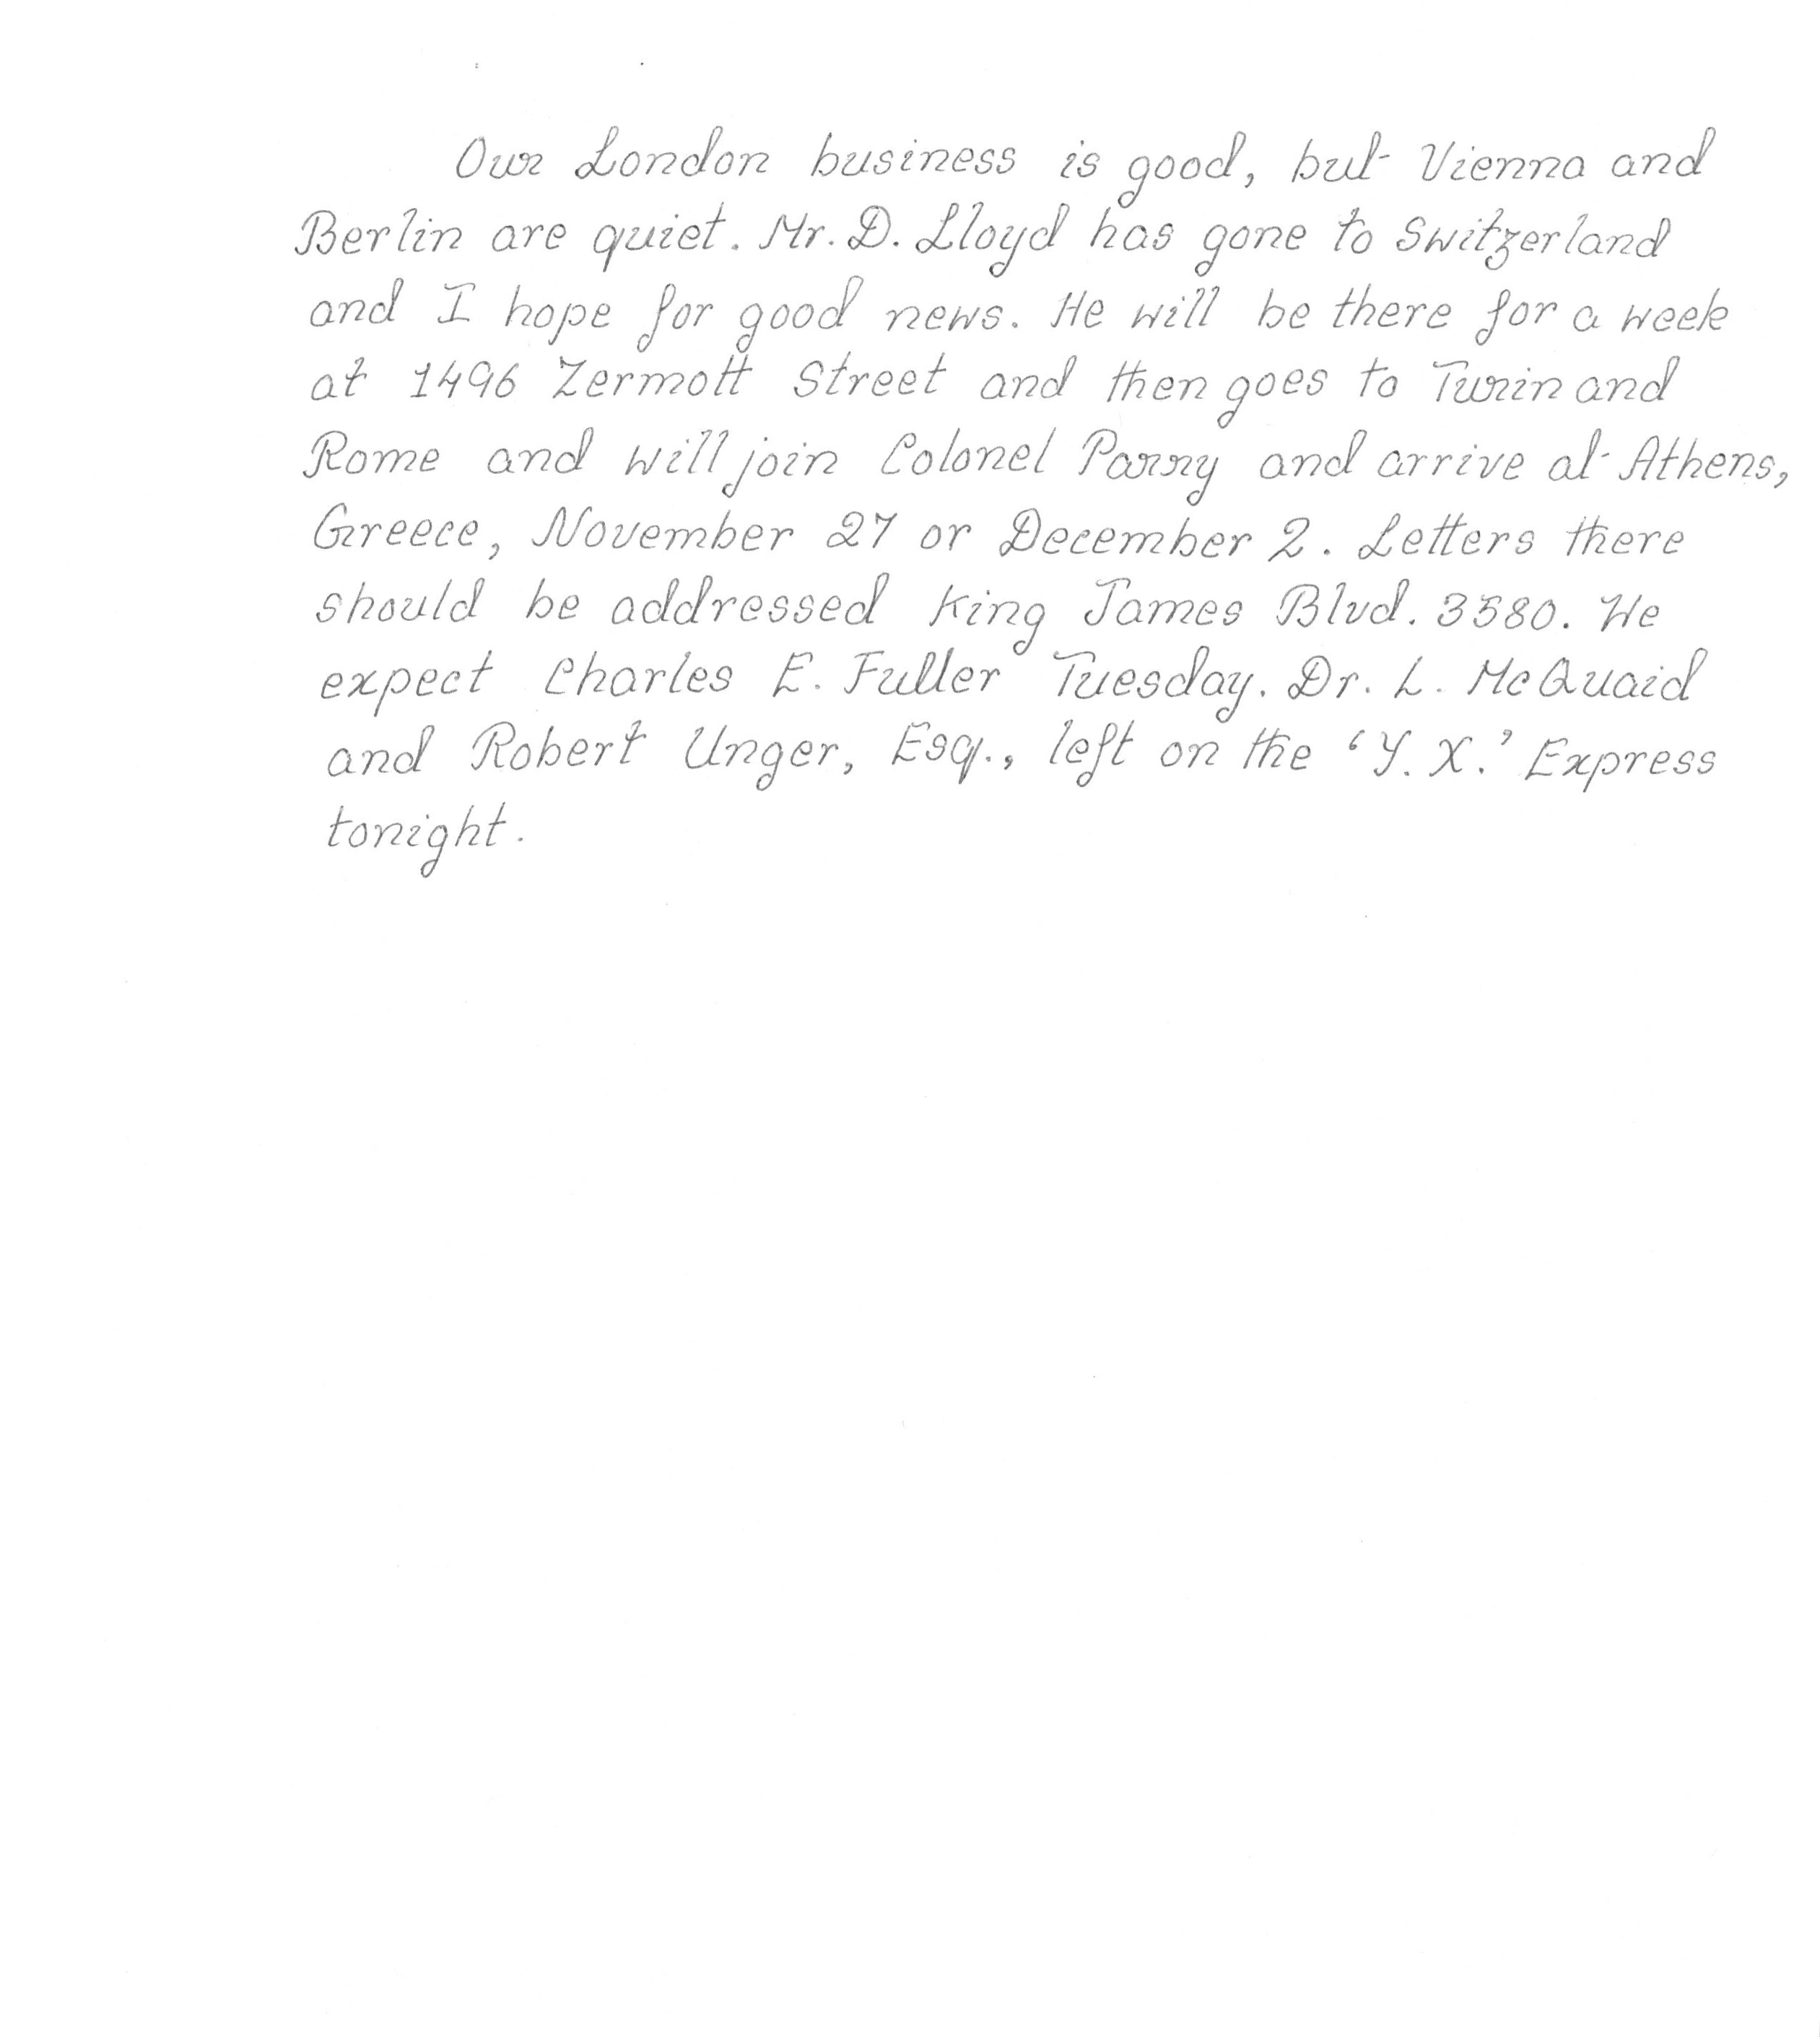 Our London business is good, but Vienna and
Berlin are quiet. Mr. D. Lloyd has gone to Switzerland
and I hope for good news. He will be there for a week
at 1496 Zermott Street and then goes to Turin and
Rome and will join Colonel Parry and arrive at Athens,
Greece, November 27 or December 2. Letters there
should be addressed King James Blvd. 3580. We
expect Charles E. Fuller Tuesday. Dr. L. McQuaid
and Robert Unger, Esq., left on the 'Y. X.' Express
tonight.